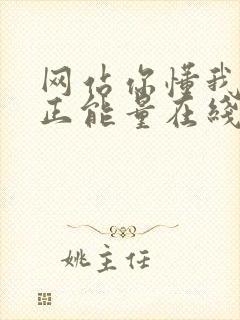 网站你懂我
正能量在线
姚主任